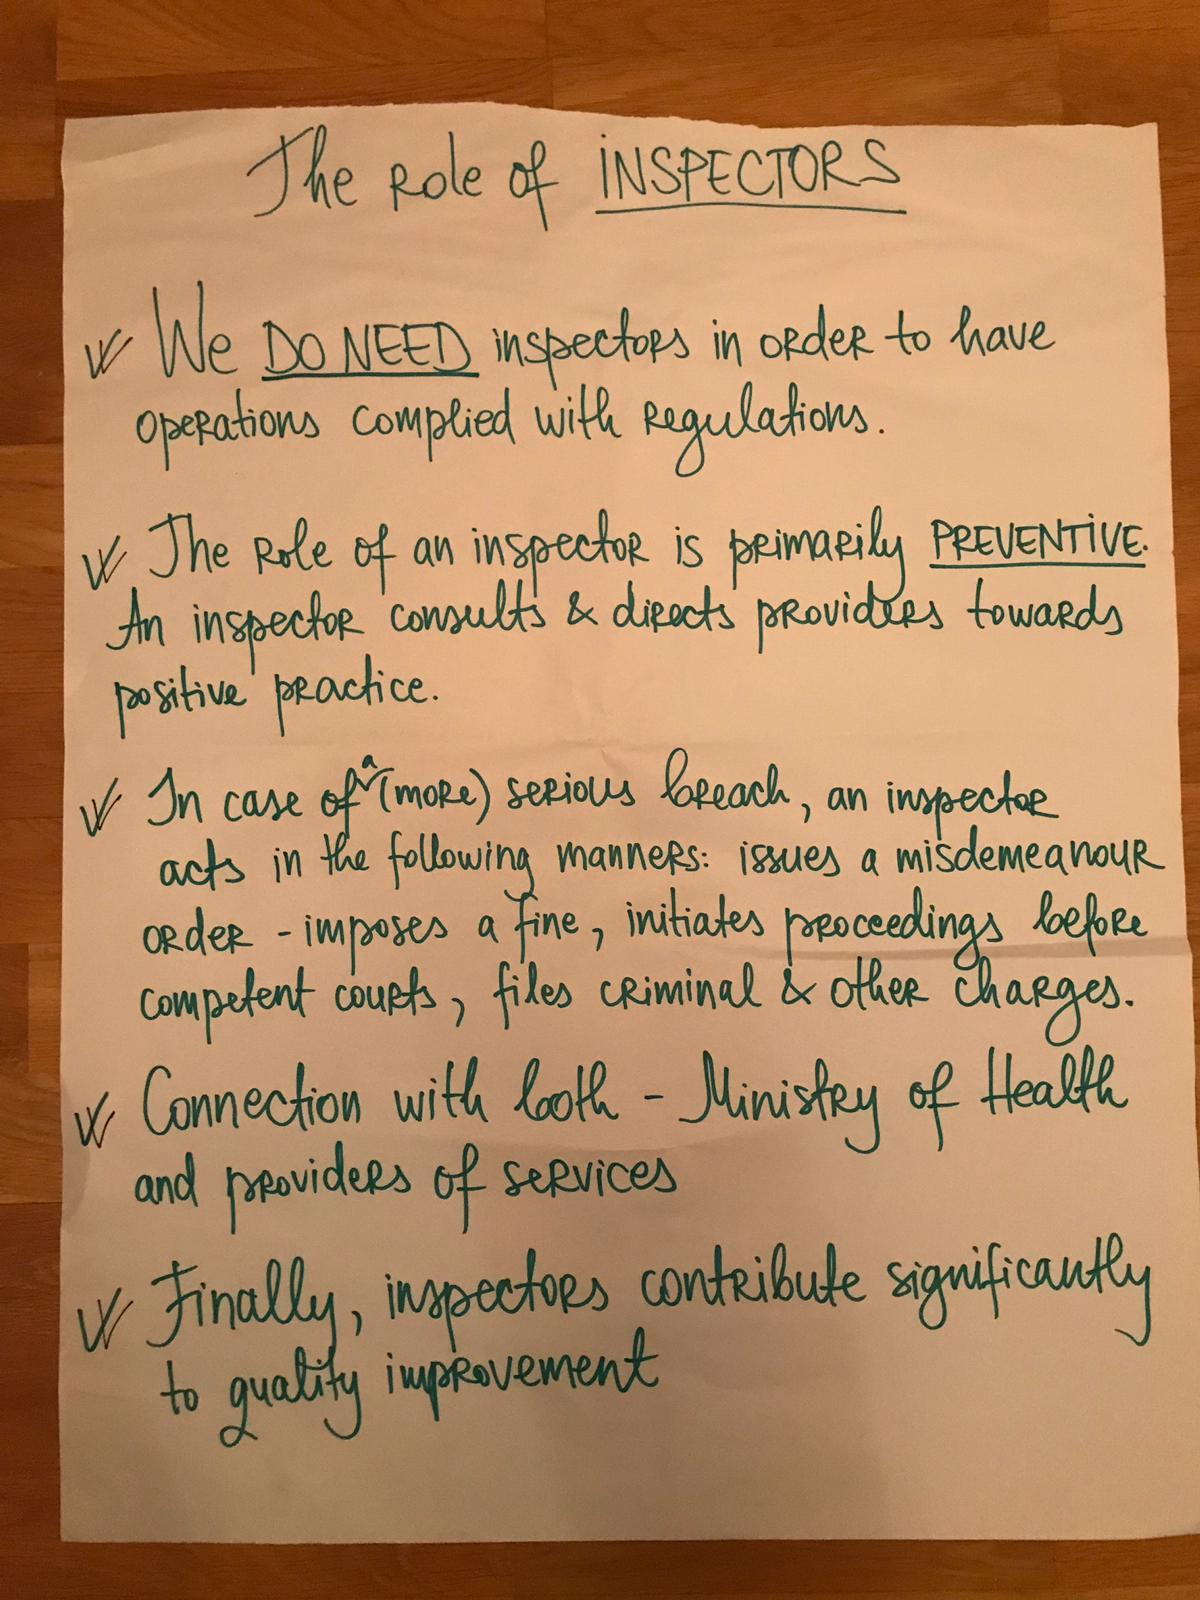 The Role of INSPECTORS
We DO NEED inspectors in order to have
operations complied with regulations.
The Role of an inspector is primarily PREVENTIVE.
An inspector consults & directs providers towards
positive practice.
In case of a (more) serious breach, an inspector
acts in the following manners: issues a misdemeanour
order - imposes a fine, initiates proceedings before
competent courts, files criminal & other charges.
Connection with both - Ministry of Health
and providers of services
Finally, inspectors contribute significantly
to quality improvement